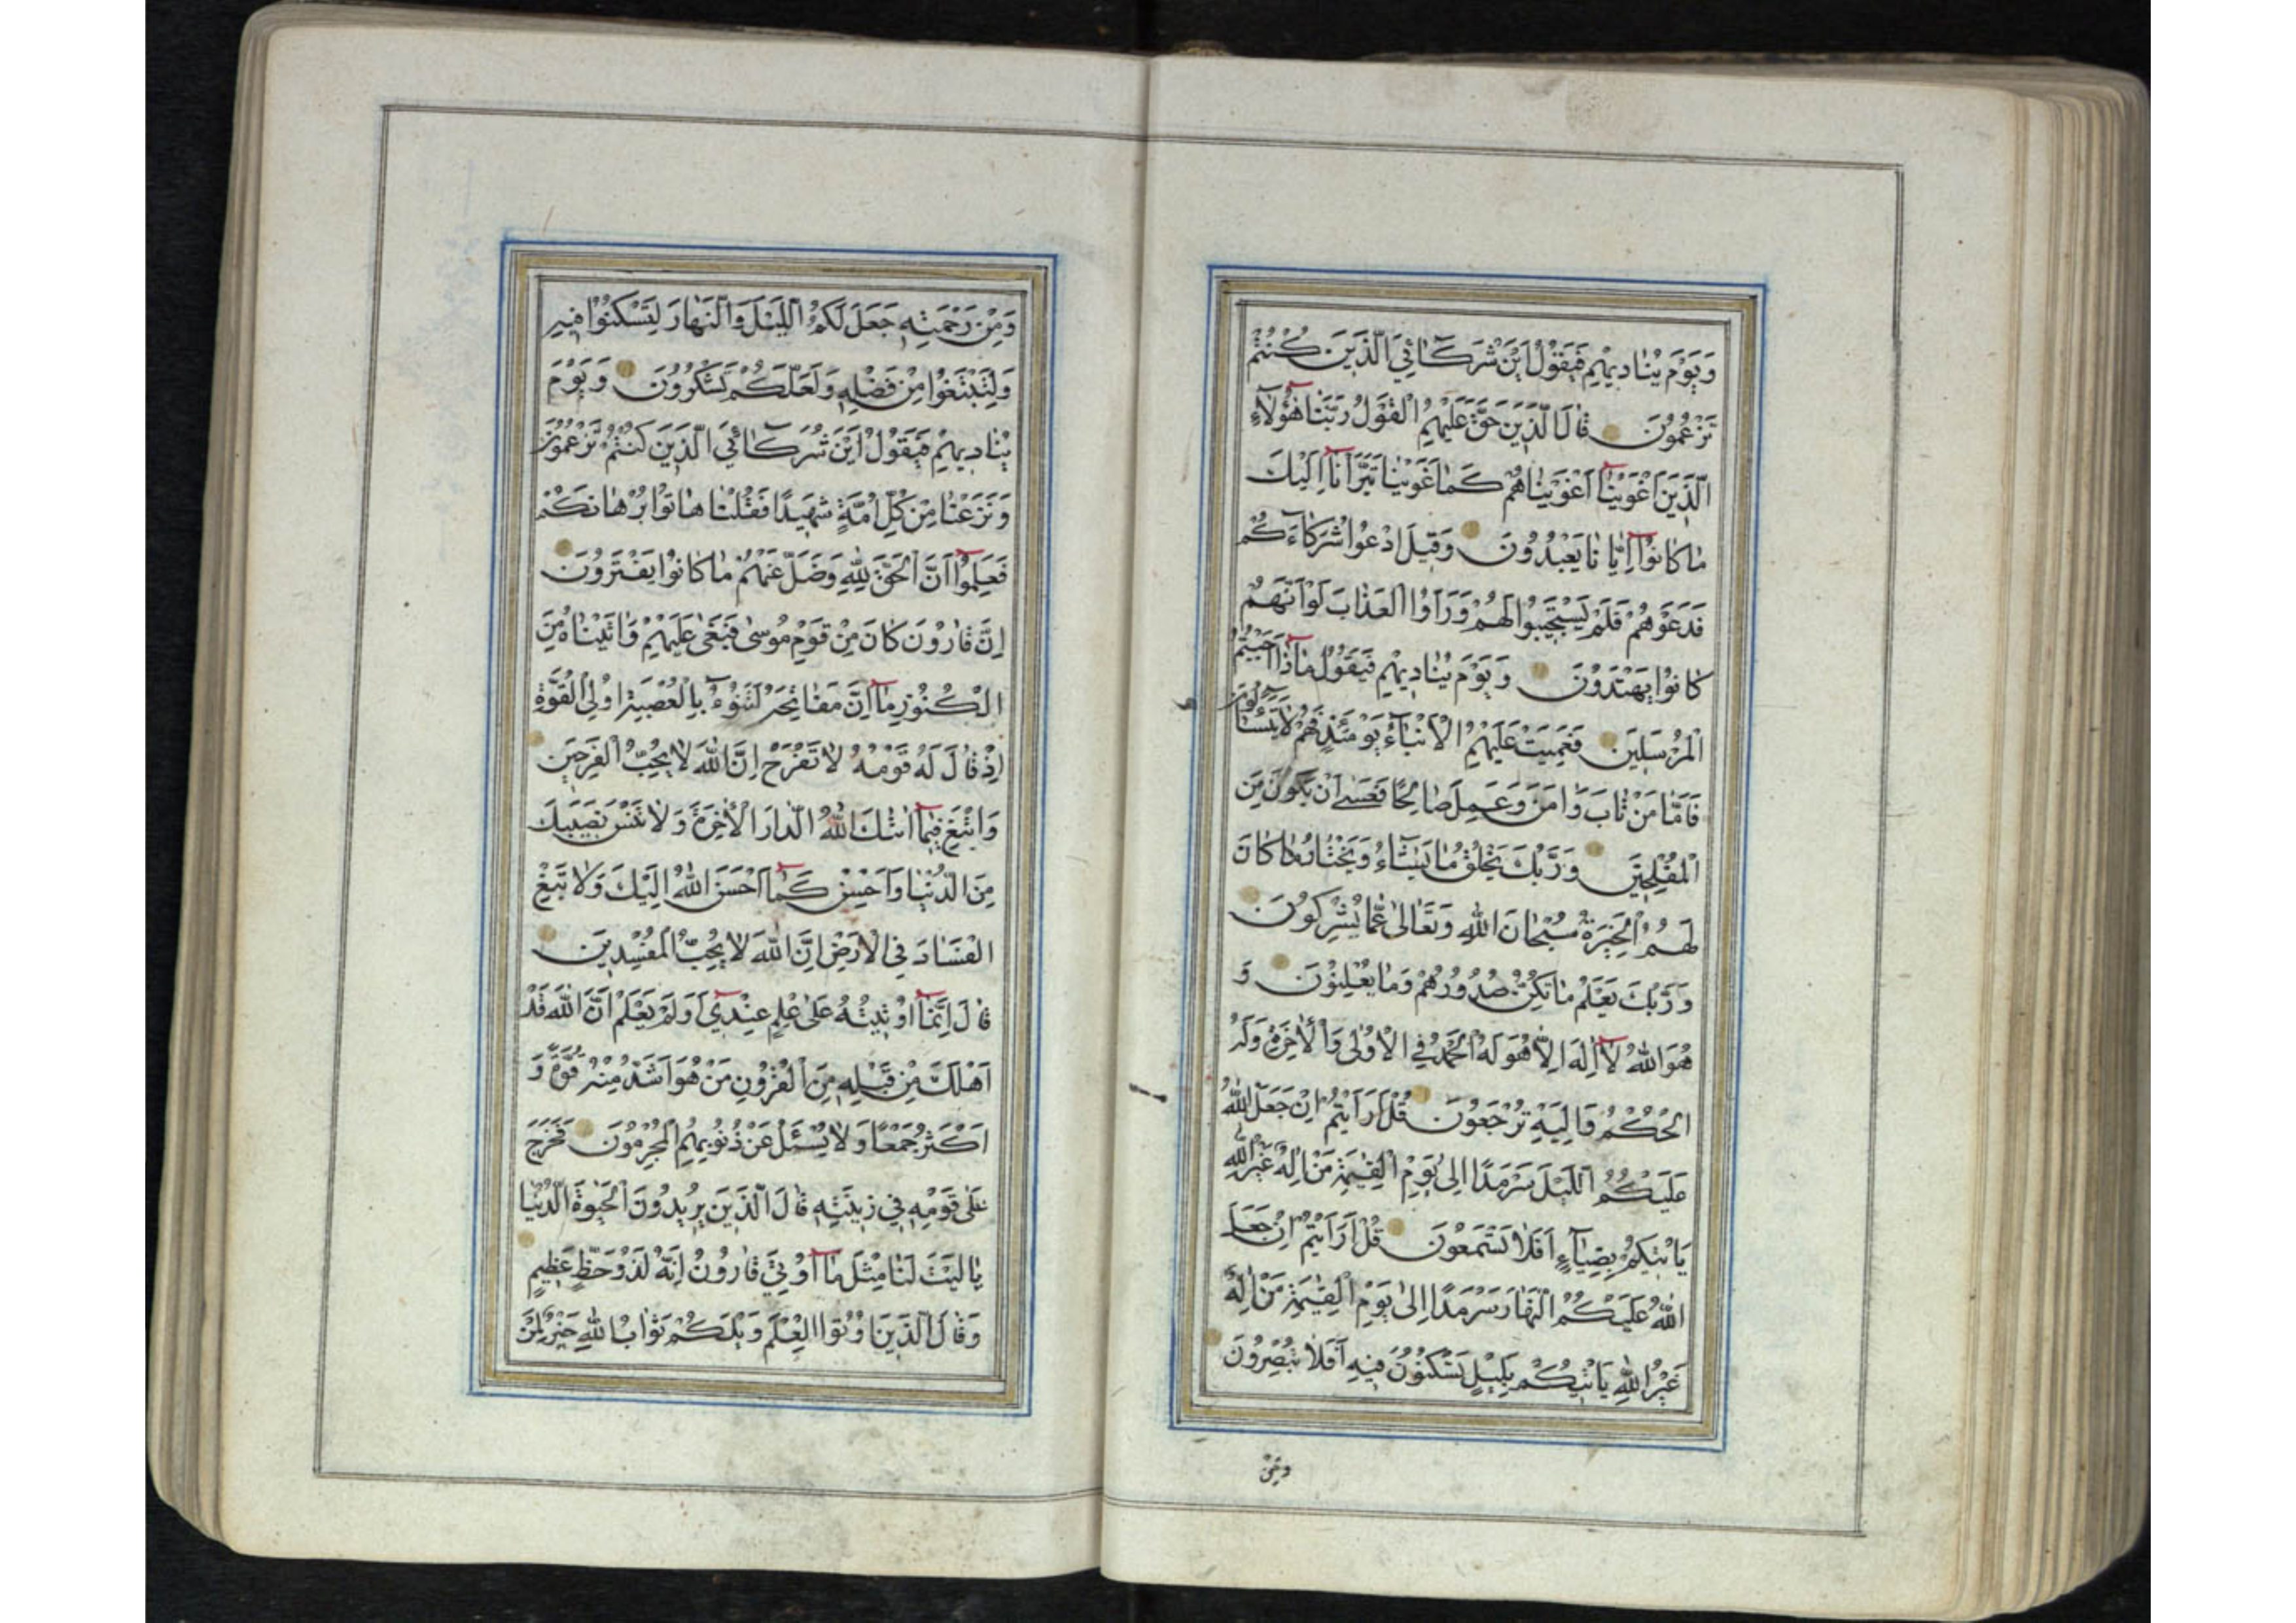 وَيَوْمَ يُنَادِيهِمْ فَيَقُولُ اَيْنَ شُرَكَآئِيَ الَّذِينَ كُنْتُمْ
تَزْعُمُونَ قَالَ الَّذِينَ حَقَّ عَلَيْهِمُ الْقَوْلُ رَبَّنَا هٰٓؤُلَآءِ
الَّذِينَ اَغْوَيْنَٓا اَغْوَيْنَاهُمْ كَمَا غَوَيْنَا تَبَرَّاْنَٓا اِلَيْكَ
مَا كَانُوٓا اِيَّانَا يَعْبُدُونَ وَقِيلَ ادْعُوا شُرَكَآءَكُمْ
فَدَعَوْهُمْ فَلَمْ يَسْتَجِيبُوا لَهُمْ وَرَاَوُا الْعَذَابَ لَوْ اَنَّهُمْ
كَانُوا يَهْتَدُونَ وَيَوْمَ يُنَادِيهِمْ فَيَقُولُ مَاذَٓا اَجَبْتُمُ
الْمُرْسَلِينَ فَعَمِيَتْ عَلَيْهِمُ الْاَنْبَآءُ يَوْمَئِذٍ فَهُمْ لَا يَتَسَآءَلُونَ
فَاَمَّا مَنْ تَابَ وَاٰمَنَ وَعَمِلَ صَالِحًا فَعَسٰٓى اَنْ يَكُونَ مِنَ
الْمُفْلِحِينَ وَرَبُّكَ يَخْلُقُ مَا يَشَآءُ وَيَخْتَارُ مَا كَانَ
لَهُمُ الْخِيَرَةُ سُبْحَانَ اللّٰهِ وَتَعَالٰى عَمَّا يُشْرِكُونَ
وَرَبُّكَ يَعْلَمُ مَا تُكِنُّ صُدُورُهُمْ وَمَا يُعْلِنُونَ وَ
هُوَ اللّٰهُ لَٓا اِلٰهَ اِلَّا هُوَ لَهُ الْحَمْدُ فِي الْاُولٰى وَالْاٰخِرَةِ وَلَهُ
الْحُكْمُ وَاِلَيْهِ تُرْجَعُونَ قُلْ اَرَاَيْتُمْ اِنْ جَعَلَ اللّٰهُ
عَلَيْكُمُ الَّيْلَ سَرْمَدًا اِلٰى يَوْمِ الْقِيٰمَةِ مَنْ اِلٰهٌ غَيْرُ اللّٰهِ
يَاْتِيكُمْ بِضِيَآءٍ اَفَلَا تَسْمَعُونَ قُلْ اَرَاَيْتُمْ اِنْ جَعَلَ
اللّٰهُ عَلَيْكُمُ النَّهَارَ سَرْمَدًا اِلٰى يَوْمِ الْقِيٰمَةِ مَنْ اِلٰهٌ
غَيْرُ اللّٰهِ يَاْتِيكُمْ بِلَيْلٍ تَسْكُنُونَ فِيهِ اَفَلَا تُبْصِرُونَ
ومن
وَمِنْ رَحْمَتِهِ جَعَلَ لَكُمُ الَّيْلَ وَالنَّهَارَ لِتَسْكُنُوا فِيهِ
وَلِتَبْتَغُوا مِنْ فَضْلِهِ وَلَعَلَّكُمْ تَشْكُرُونَ وَيَوْمَ
يُنَادِيهِمْ فَيَقُولُ اَيْنَ شُرَكَآئِيَ الَّذِينَ كُنْتُمْ تَزْعُمُونَ
وَنَزَعْنَا مِنْ كُلِّ اُمَّةٍ شَهِيدًا فَقُلْنَا هَاتُوا بُرْهَانَكُمْ
فَعَلِمُوٓا اَنَّ الْحَقَّ لِلّٰهِ وَضَلَّ عَنْهُمْ مَا كَانُوا يَفْتَرُونَ
اِنَّ قَارُونَ كَانَ مِنْ قَوْمِ مُوسٰى فَبَغٰى عَلَيْهِمْ وَاٰتَيْنَاهُ مِنَ
الْكُنُوزِ مَٓا اِنَّ مَفَاتِحَهُ لَتَنُوٓءُ بِالْعُصْبَةِ اُولِي الْقُوَّةِ
اِذْ قَالَ لَهُ قَوْمُهُ لَا تَفْرَحْ اِنَّ اللّٰهَ لَا يُحِبُّ الْفَرِحِينَ
وَابْتَغِ فِيمَٓا اٰتٰىكَ اللّٰهُ الدَّارَ الْاٰخِرَةَ وَلَا تَنْسَ نَصِيبَكَ
مِنَ الدُّنْيَا وَاَحْسِنْ كَمَٓا اَحْسَنَ اللّٰهُ اِلَيْكَ وَلَا تَبْغِ
الْفَسَادَ فِي الْاَرْضِ اِنَّ اللّٰهَ لَا يُحِبُّ الْمُفْسِدِينَ
قَالَ اِنَّمَٓا اُوتِيتُهُ عَلٰى عِلْمٍ عِنْدِي اَوَلَمْ يَعْلَمْ اَنَّ اللّٰهَ قَدْ
اَهْلَكَ مِنْ قَبْلِهِ مِنَ الْقُرُونِ مَنْ هُوَ اَشَدُّ مِنْهُ قُوَّةً وَ
اَكْثَرُ جَمْعًا وَلَا يُسْئَلُ عَنْ ذُنُوبِهِمُ الْمُجْرِمُونَ فَخَرَجَ
عَلٰى قَوْمِهِ فِي زِينَتِهِ قَالَ الَّذِينَ يُرِيدُونَ الْحَيٰوةَ الدُّنْيَا
يَالَيْتَ لَنَا مِثْلَ مَٓا اُوتِيَ قَارُونُ اِنَّهُ لَذُو حَظٍّ عَظِيمٍ
وَقَالَ الَّذِينَ اُوتُوا الْعِلْمَ وَيْلَكُمْ ثَوَابُ اللّٰهِ خَيْرٌ لِمَنْ